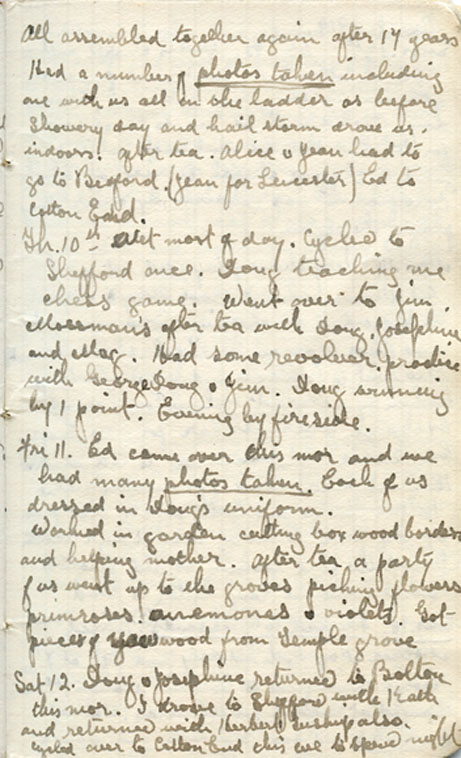 All assembled together again after 14 years
Had a number of photos taken including
one with us all on the ladder as before
Showery day and hail storm drove us
indoors. After tea. Alice & Jean had to
go to Bedford. (Jean for Leicester) Ed to
Cotton End.
Th. 10th Wet most of day. Cycled to
Shefford once. Doug teaching me
chess game. Went over to Jim
Mossman's after tea with Doug, Josephine
and Mag. Had some revolver practice
with George Doug & Jim. Doug winning
by 1 point. Evening by fireside.
Fri 11. Ed came over this mor and we
had many photos taken. Each of us
dressed in Doug's uniform.
Worked in garden cutting box wood borders
and helping mother. After tea a party
of us went up to the groves picking flowers
primroses. anemones & violets. Got
pieces of yew wood from Temple grove
Sat 12. Doug & Josephine returned to Bolton
this mor. I drove to Shefford with Kath
and returned with Herbert also.
Cycled over to Cotton End this eve to spend night